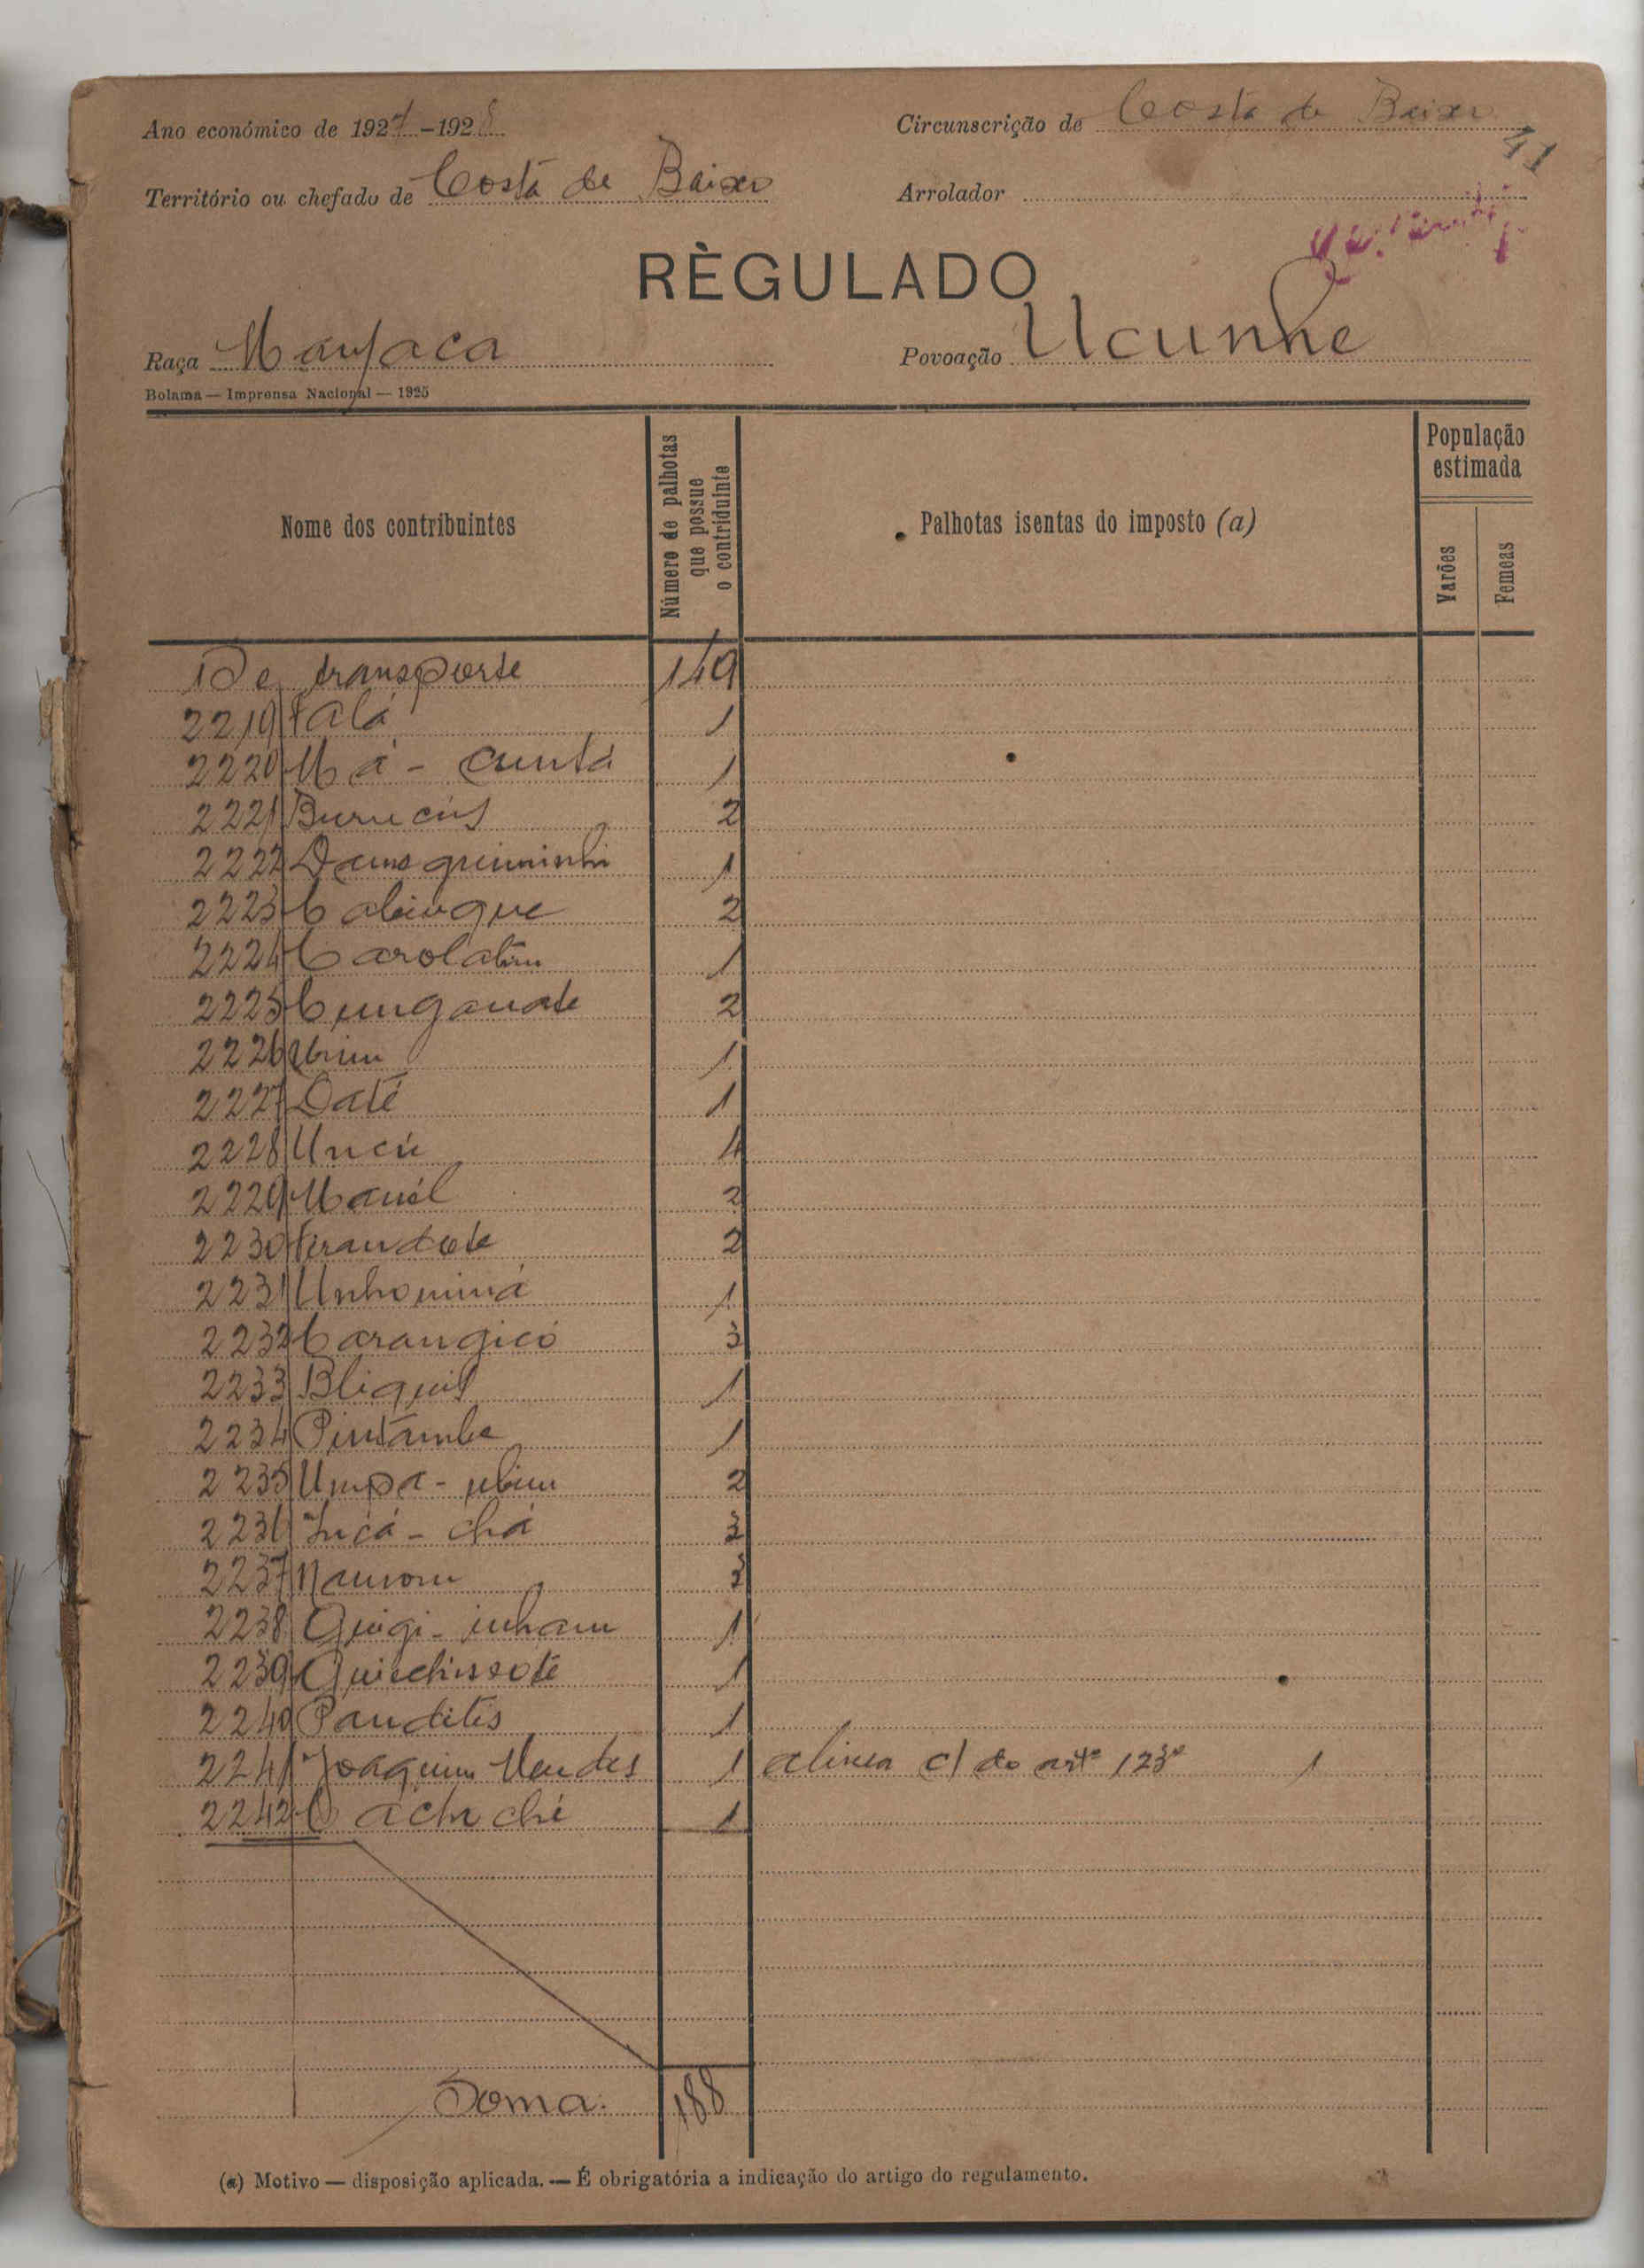 Ano económico de 1927-1928
Circunscrição de Costa de Baixo
41
Território ou chefado de Costa de Baixo
Arrolador
RÈGULADO
Raça Manjaca
Povoação Ucunhe
Bolama — Imprensa Nacional — 1925
Nome dos contribuintes
Número de palhotas que possue o contriduinte
Palhotas isentas do imposto (a)
População estimada
Varões
Femeas
De transporte 149
2219 Falá 1
2220 Má - cuntá 1
2221 Burucús 2
2222 1
2223 2
2224 1
2225 2
2226 1
2227 Daté 1
2228 Uncú 4
2229 Manél 2
2230 2
2231 1
2232 Carangicó 3
2233 Bliquis 1
2234 Pintambe 1
2235 2
2236 - chá 3
2237 3
2238 1
2239 1
2240 Pandités 1
2241 Joaquim Mendes 1 alinea c/ do artº 123º 1
2242 1
Soma. 188
(a) Motivo — disposição aplicada. — É obrigatória a indicação do artigo do regulamento.